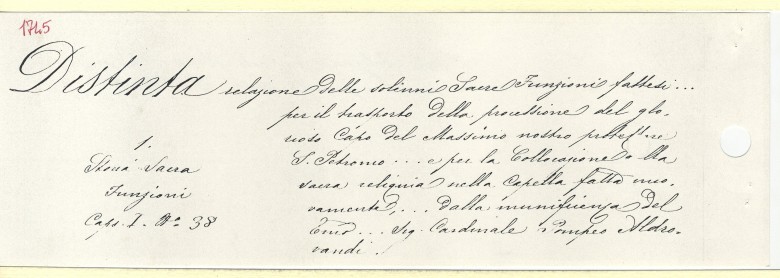 1745
Distinta relazione delle solenni Sacre Funzioni fattesi...
per il trasporto della processione del glo-
rioso Capo del Massimo nostro protettore
S. Petronio... e per la Collocazione della
sacra reliquia nella Capella fatta nuo-
vamente,... dalla munificenza del
Emo... Sig. Cardinale Pompeo Aldro-
vandi.
1.
Storia Sacra
Funzioni
Caps. I. No. 38